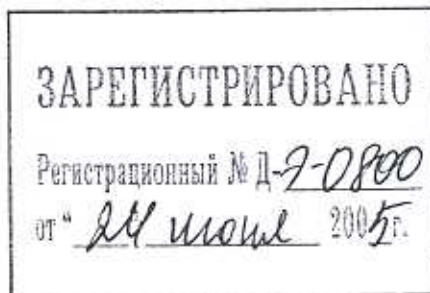 ЗАРЕГИСТРИРОВАНО
Регистрационный № Д-7-0800
от " 24 июня 2005г.